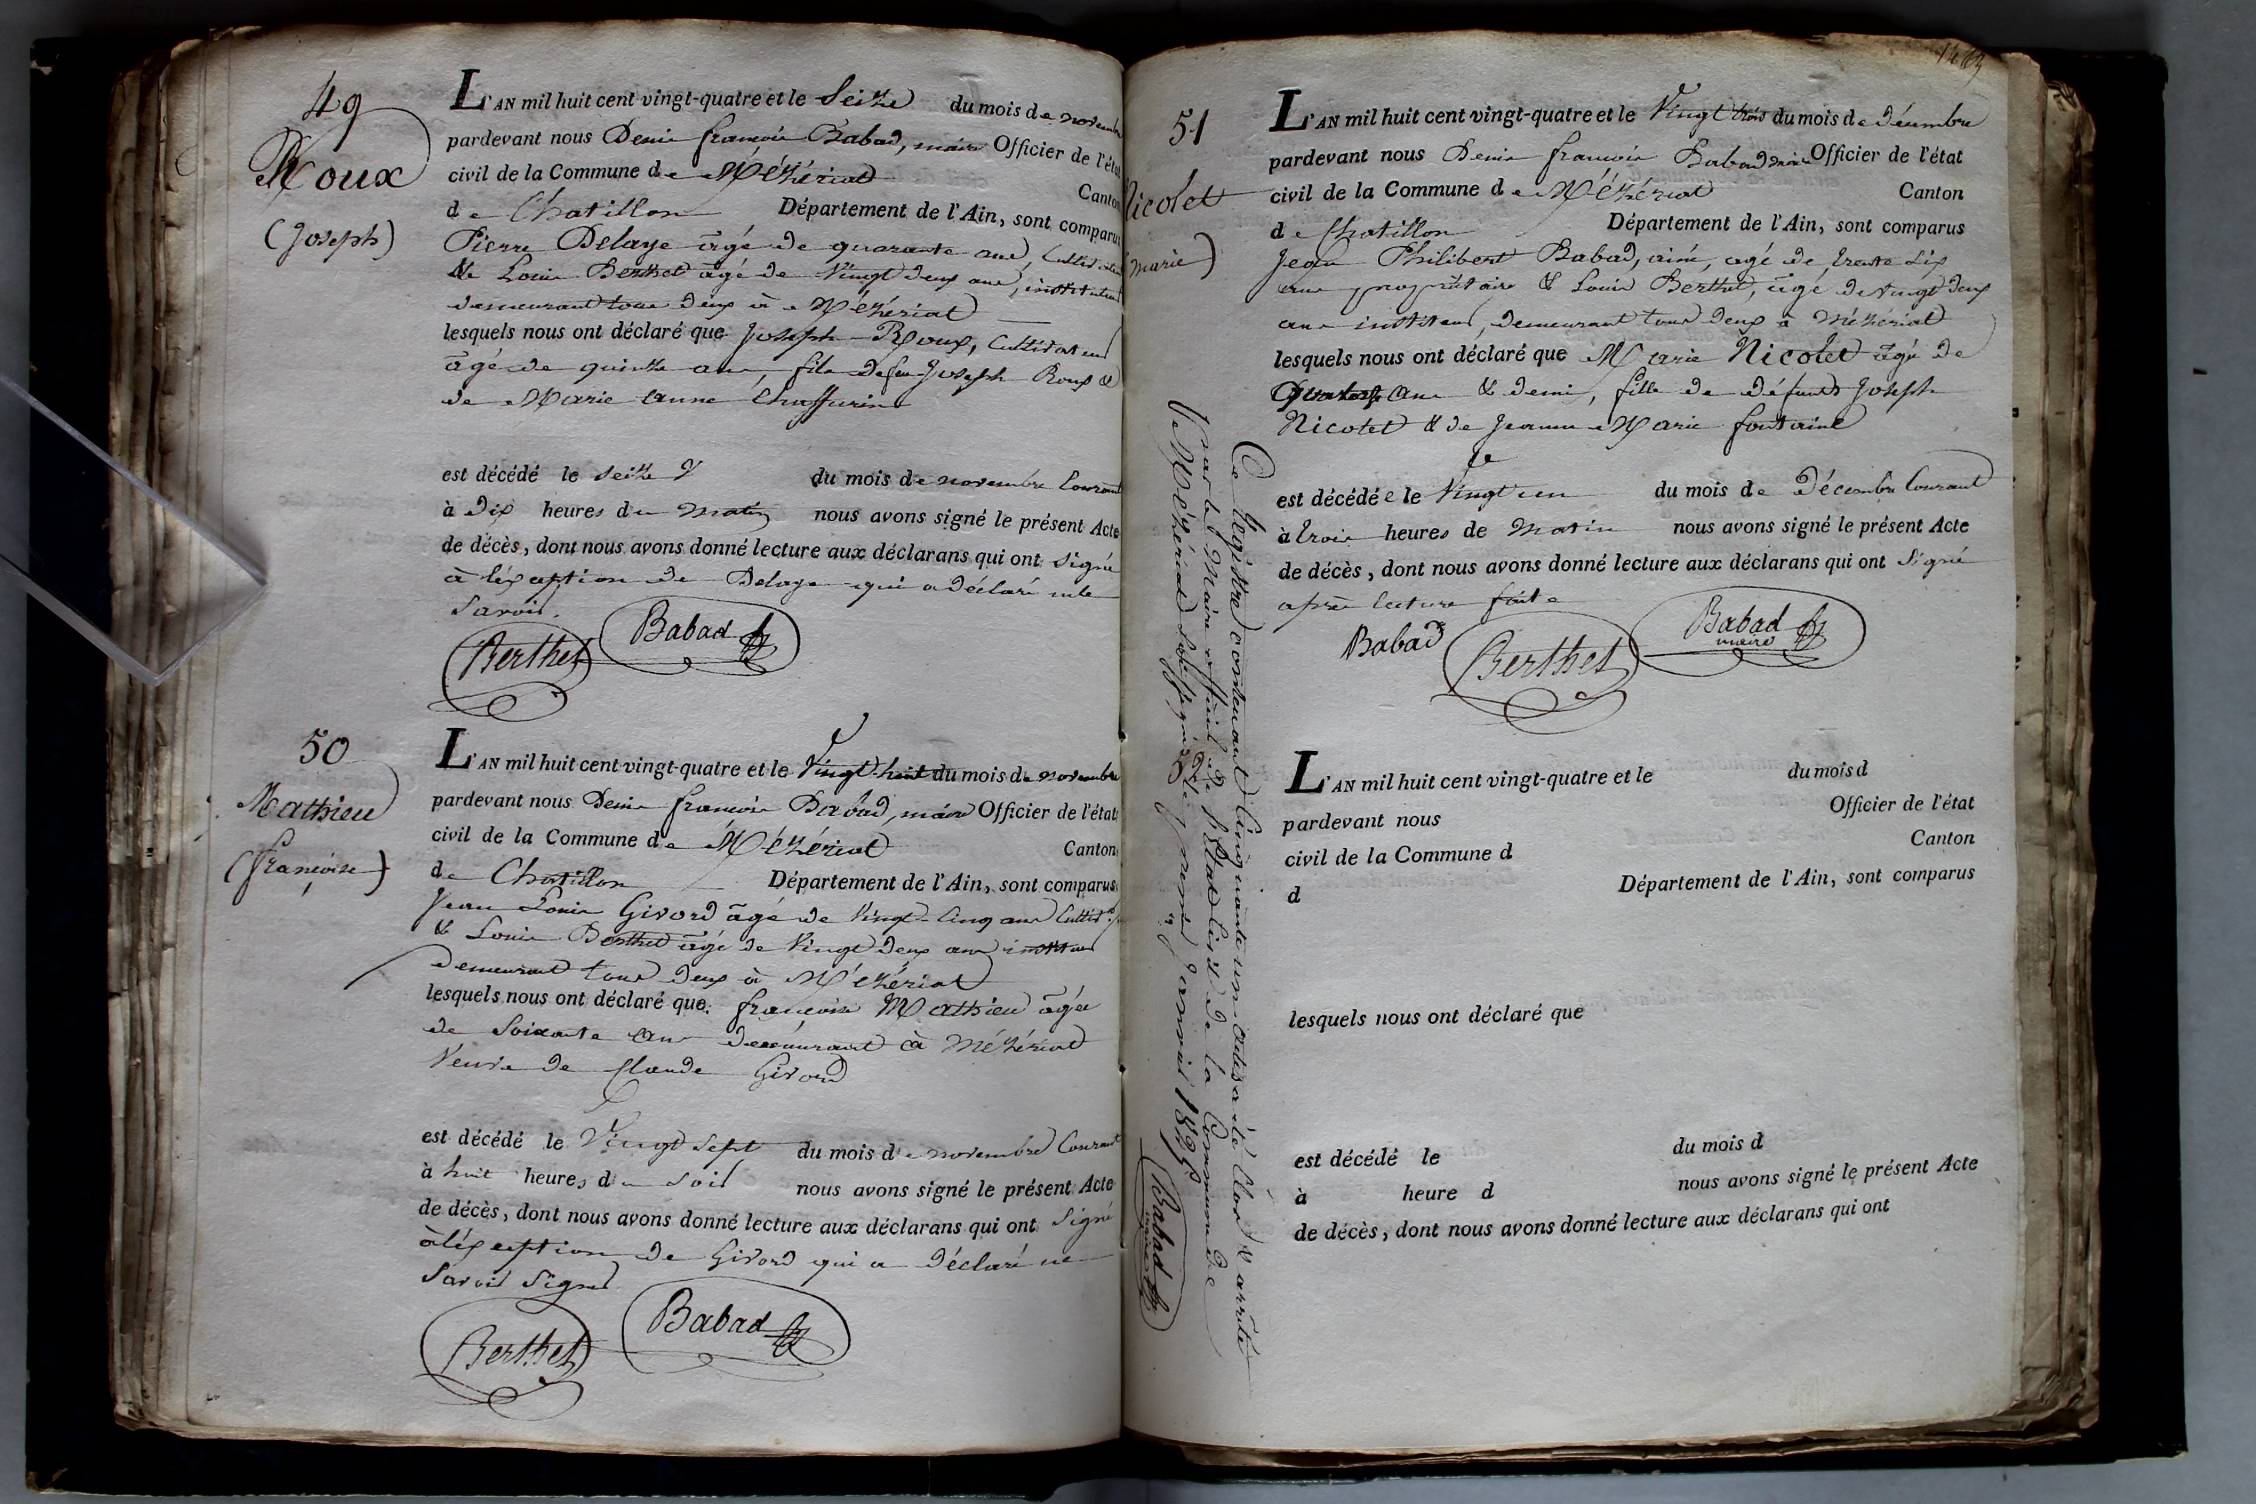 49
Roux
(Joseph)
L'AN mil huit cent vingt-quatre et le Seize du mois de novembre
pardevant nous Denis françois Babad, maire Officier de l'état
civil de la Commune de Mézériat Canton
de Chatillon Département de l'Ain, sont comparus
Pierre Delaye agé de quarante ans, Cultivateur
& Louis Berthet agé de Vingt deux ans, instituteur
demeurant tous deux à Mézériat
lesquels nous ont déclaré que Joseph Roux, Cultivateur
âgé de quinze ans, fils de feu Joseph Roux &
de Marie Anne Chaffurin
est décédé le seize du mois de novembre Courant
à dix heures du matin nous avons signé le présent Acte
de décès, dont nous avons donné lecture aux déclarans qui ont Signé
à léxception de Delaye qui a déclaré ne le
Savoir.
Berthet Babad
50
Mathieu
(françoise)
L'AN mil huit cent vingt-quatre et le Vingt-huit du mois de novembre
pardevant nous Denis françois Babad, maire Officier de l'état
civil de la Commune de Mézériat Canton
de Chatillon Département de l'Ain, sont comparus
Jean Louis Givord âgé de Vingt-Cinq ans Cultivr
& Louis Berthet âgé de Vingt deux ans instituteur
demeurant tous deux à Mézériat
lesquels nous ont déclaré que françoise Mathieu âgée
de Soixante ans demeurant à Mézériat
Veuve de Claude Givord
est décédé le Vingt Sept du mois de novembre Courant
à huit heures du Soir nous avons signé le présent Acte
de décès, dont nous avons donné lecture aux déclarans qui ont Signé
à léxception de Givord qui a déclaré ne
Savoir Signer
Berthet Babad
51
Nicolet
(marie)
L'AN mil huit cent vingt-quatre et le Vingt trois du mois de décembre
pardevant nous Denis françois Babad maire Officier de l'état
civil de la Commune de Mézériat Canton
de Chatillon Département de l'Ain, sont comparus
Jean Philibert Babad, ainé, agé de trente Six
ans propriétaire & Louis Berthet, âgé de vingt deux
ans instituteur, demeurant tous deux à Mézériat
lesquels nous ont déclaré que Marie Nicolet âgée de
Quatorze ans & demi, fille de défunts Joseph
Nicolet & de Jeanne Marie fontaine
est décédée le Vingt un du mois de Décembre Courant
à trois heures de Matin nous avons signé le présent Acte
de décès, dont nous avons donné lecture aux déclarans qui ont Signé
après lecture faite
Babad Berthet Babad
maire
Ce Régistre contenant Cinquante un actes a été Clos & arrêté
par le Maire officier de l'Etat Civil de la Commune de
de Mézériat Soussigné le premier Janvier 1825
Babad
maire
L'AN mil huit cent vingt-quatre et le du mois d
pardevant nous Officier de l'état
civil de la Commune d Canton
d Département de l'Ain, sont comparus
lesquels nous ont déclaré que
est décédé le du mois d
à heure d nous avons signé le présent Acte
de décès, dont nous avons donné lecture aux déclarans qui ont